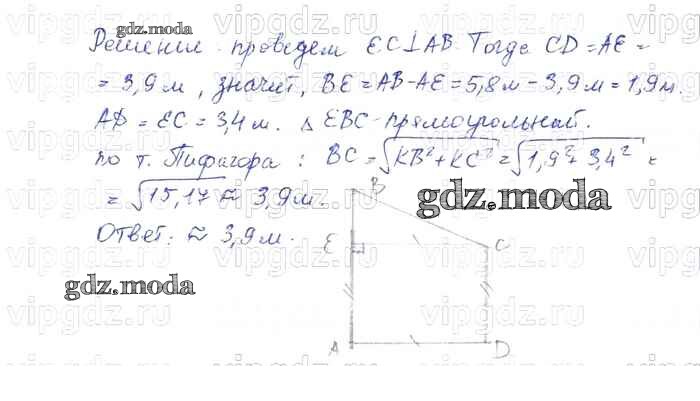 gdz.moda
Решение. проведем EC⊥AB. Тогда CD = AE =
= 3,9 м, значит, BE = AB - AE = 5,8 м - 3,9 м = 1,9 м.
AD = EC = 3,4 м. △ EBC - прямоугольный.
по т. Пифагора: BC = √KB² + KC² = √1,9² + 3,4² =
= √15,17 ≈ 3,9 м.
gdz.moda
Ответ: ≈ 3,9 м.
gdz.moda
B
E
C
A
D
vipgdz.ru